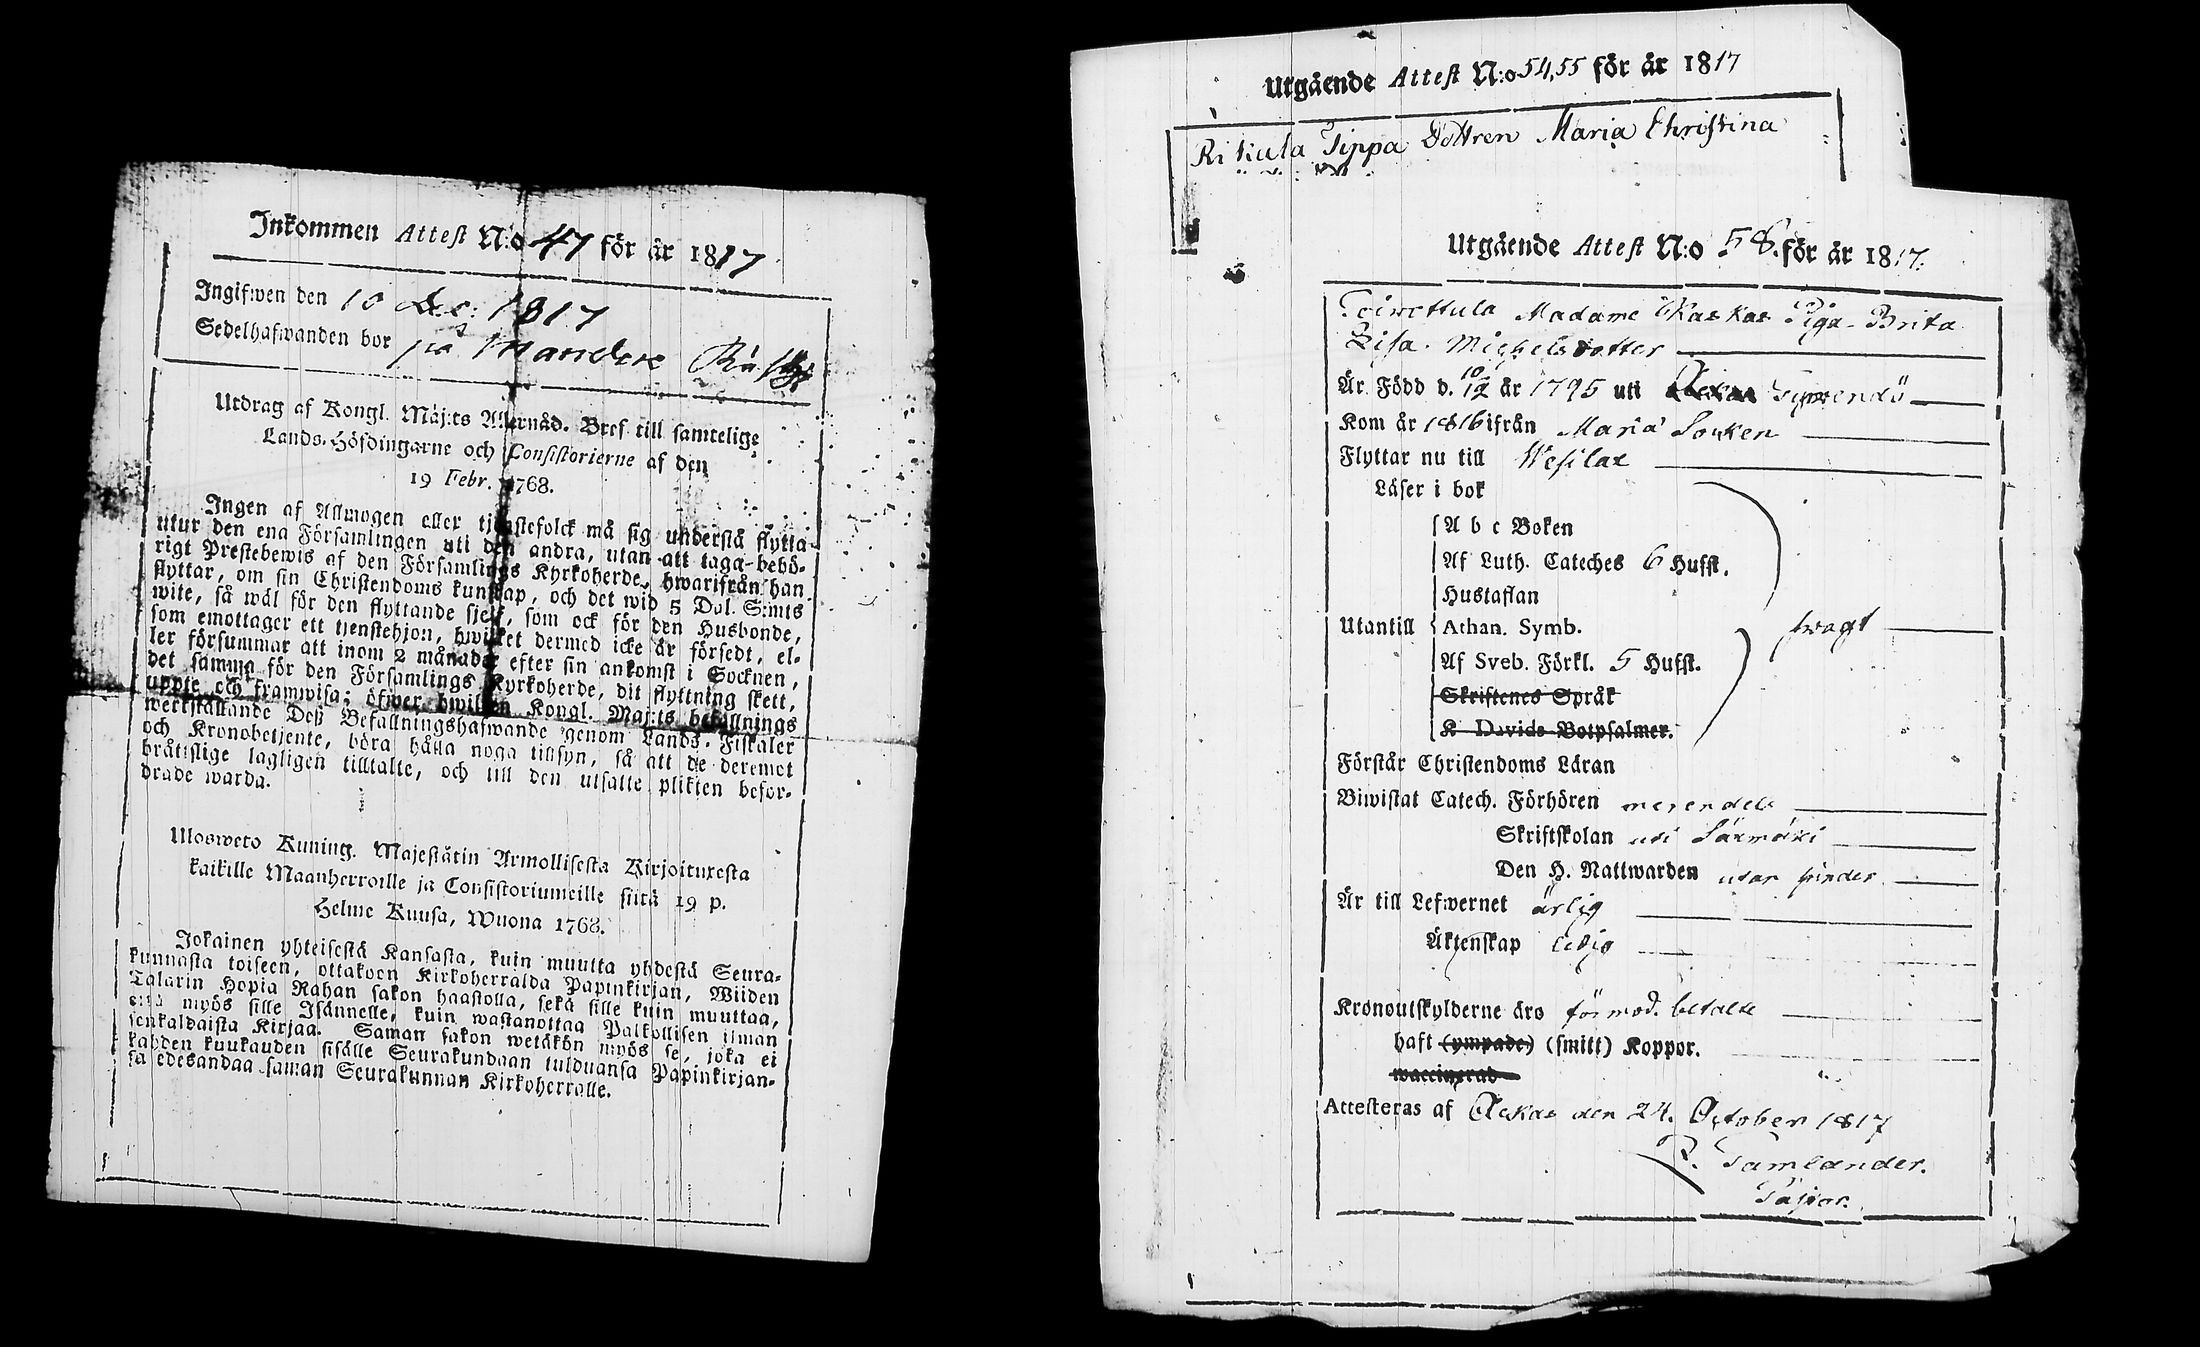 Inkommen Attest N:o 47 för år 1817
Ingifwen den 10 Dec: 1817
Sedelhafwanden bor på
Utdrag af Kongl. Maj:ts Allernåd. Bref till samtelige
Lands-Höfdingarne och Consistorierne af den
19 Febr. 1768.
Ingen af Allmogen eller tjenstefolck må sig understå flytta
utur den ena Församlingen uti den andra, utan att taga behö-
rigt Prestebewis af den Församlings Kyrkoherde, hwarifrån han
flyttar, om sin Christendoms kunskap, och det wid 5 Dal. S:mts
wite, så wäl för den flyttande sjelf, som ock för den Husbonde,
som emottager ett tjenstehjon, hwilket dermed icke är försedt, el-
ler försummar att inom 2 månader efter sin ankomst i Socknen,
det samma för den Församlings Kyrkoherde, dit flyttning skett,
uppte och framwisa; öfwer hwilken Kongl. Maj:ts befallnings
werkställande Deß Befallningshafwande genom Lands-Fiskaler
och Kronobetjente, böra hålla noga tillsyn, så att de deremot
bråtislige lagligen tilltalte, och till den utsatte plikten befor-
drade warda.
Ulosweto Kuning. Majestätin Armollisesta Kirjoituxesta
kaikille Maanherroille ja Consistoriumeille siitä 19 p.
Helme Kuusa, Wuona 1768.
Jokainen yhteisestä Kansasta, kuin muutta yhdestä Seura-
kunnasta toiseen, ottakoon Kirkoherralda Papinkirjan, Wiiden
Talarin Hopia Rahan sakon haastolla, sekä sille kuin muuttaa,
että myös sille Isännelle, kuin wastanottaa Palkollisen ilman
senkaldaista Kirjaa. Saman sakon wetäkön myös se, joka ei
kahden kuukauden sisälle Seurakundaan tulduansa Papinkirjan-
sa edesandaa saman Seurakunnan Kirkoherralle.
Utgående Attest N:o 54,55 för år 1817
Rikula Jippa Dottren Maria Christina
Utgående Attest N:o 58. för år 1817.
Madame Piga Brita
Lisa Michelsdotter
Är Född d. 10/12 år 1795 uti
Kom år 1816 ifrån Maria Socken
Flyttar nu till Wesilax
Läser i bok
A b c Boken
Af Luth. Cateches 6 Hufst.
Hustaflan
Utantill Athan. Symb. swagt
Af Sveb. Förkl. 5 Hufst.
Skriftenes Språk
K Davids Botpsalmer.
Förstår Christendoms Läran
Biwistat Catech. Förhören merendels
Skriftskolan uti Säxmäki
Den H. Nattwarden utan hinder
Är till Lefwernet ärlig
Äktenskap ledig
Kronoutskylderne äro förmod. betalte
haft (ympade) (smitt) Koppor.
waccinerad
Attesteras af Ackas den 24. October 1817